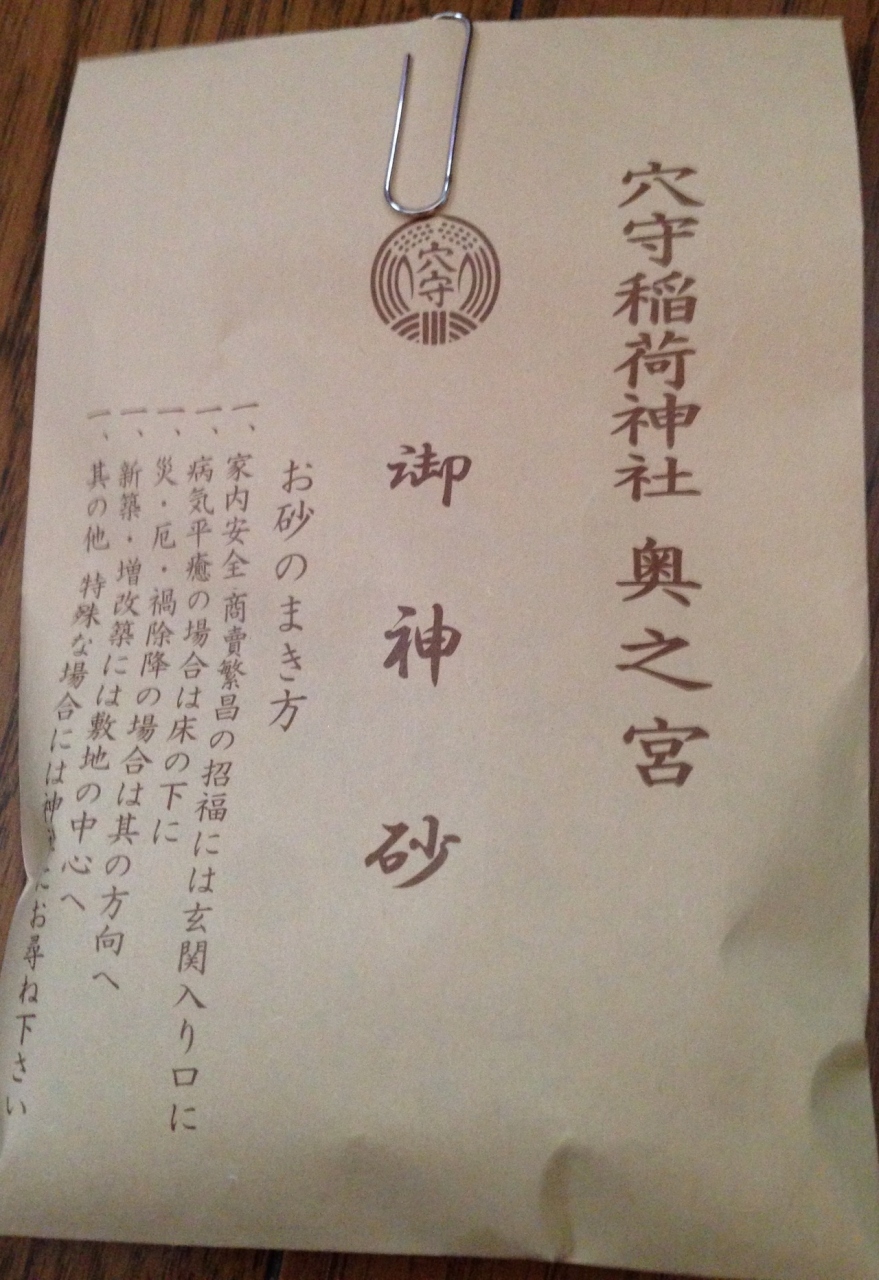 穴守稲荷神社 奥之宮
穴守
御神砂
お砂のまき方
一、家内安全・商賣繁昌の招福には玄関入り口に
一、病気平癒の場合は床の下に
一、災・厄・禍除降の場合は其の方向へ
一、新築・増改築には敷地の中心へ
一、其の他 特殊な場合には神社にお尋ね下さい